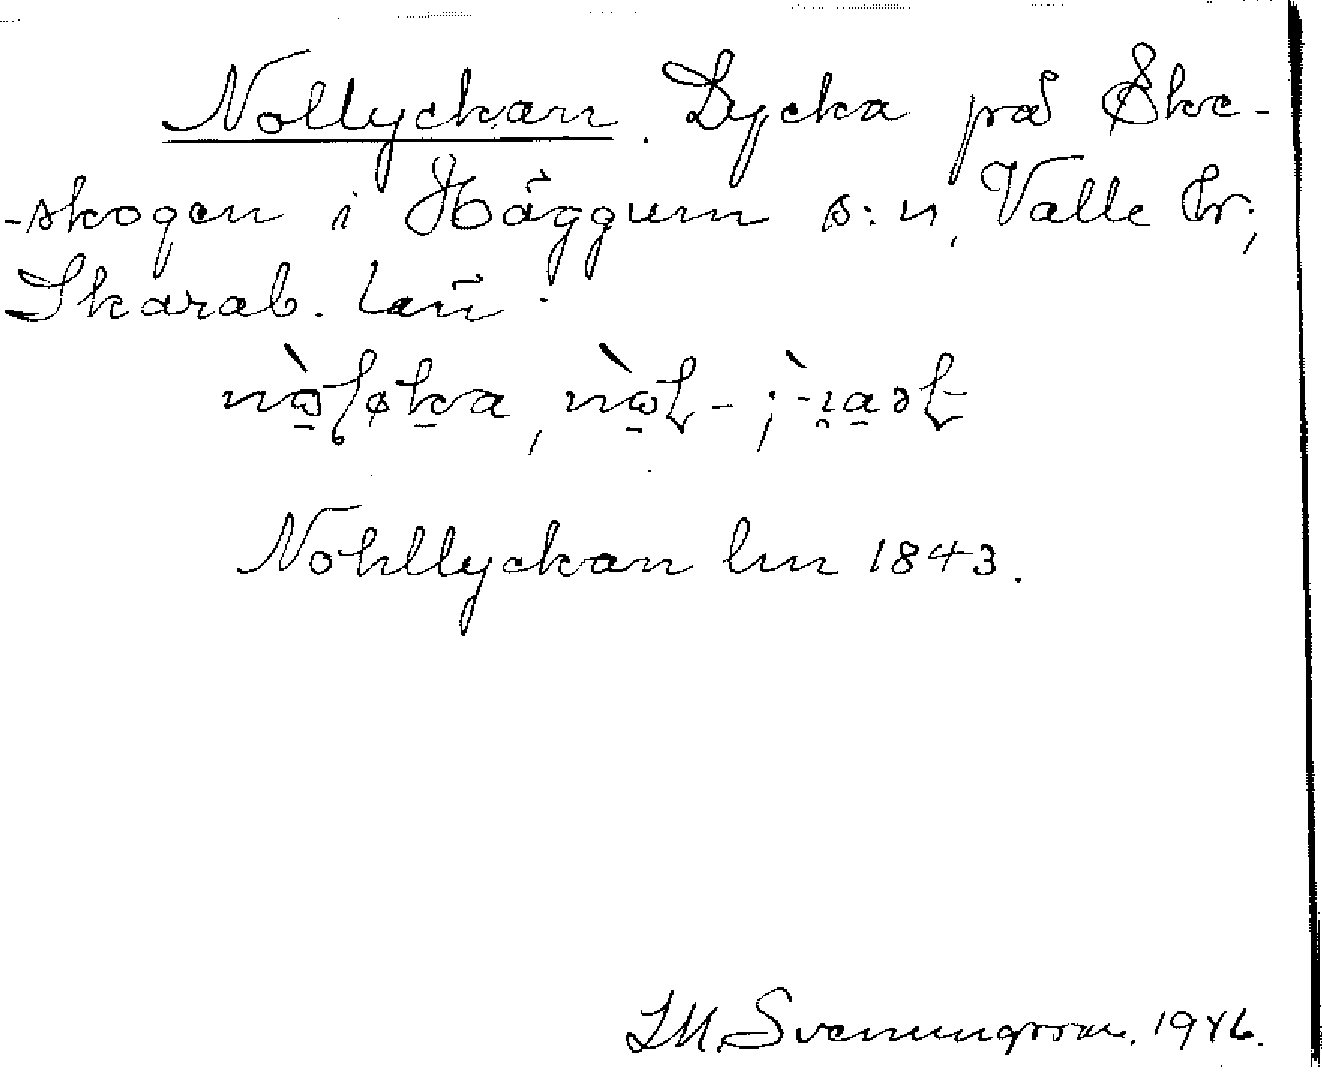 Nollyckan. Lycka på Öke-
-skogen i Häggum s:n, Valle hr,
Skarab. län.
Nohllyckan lm 1843.
S.M. Svenungsson. 1946.